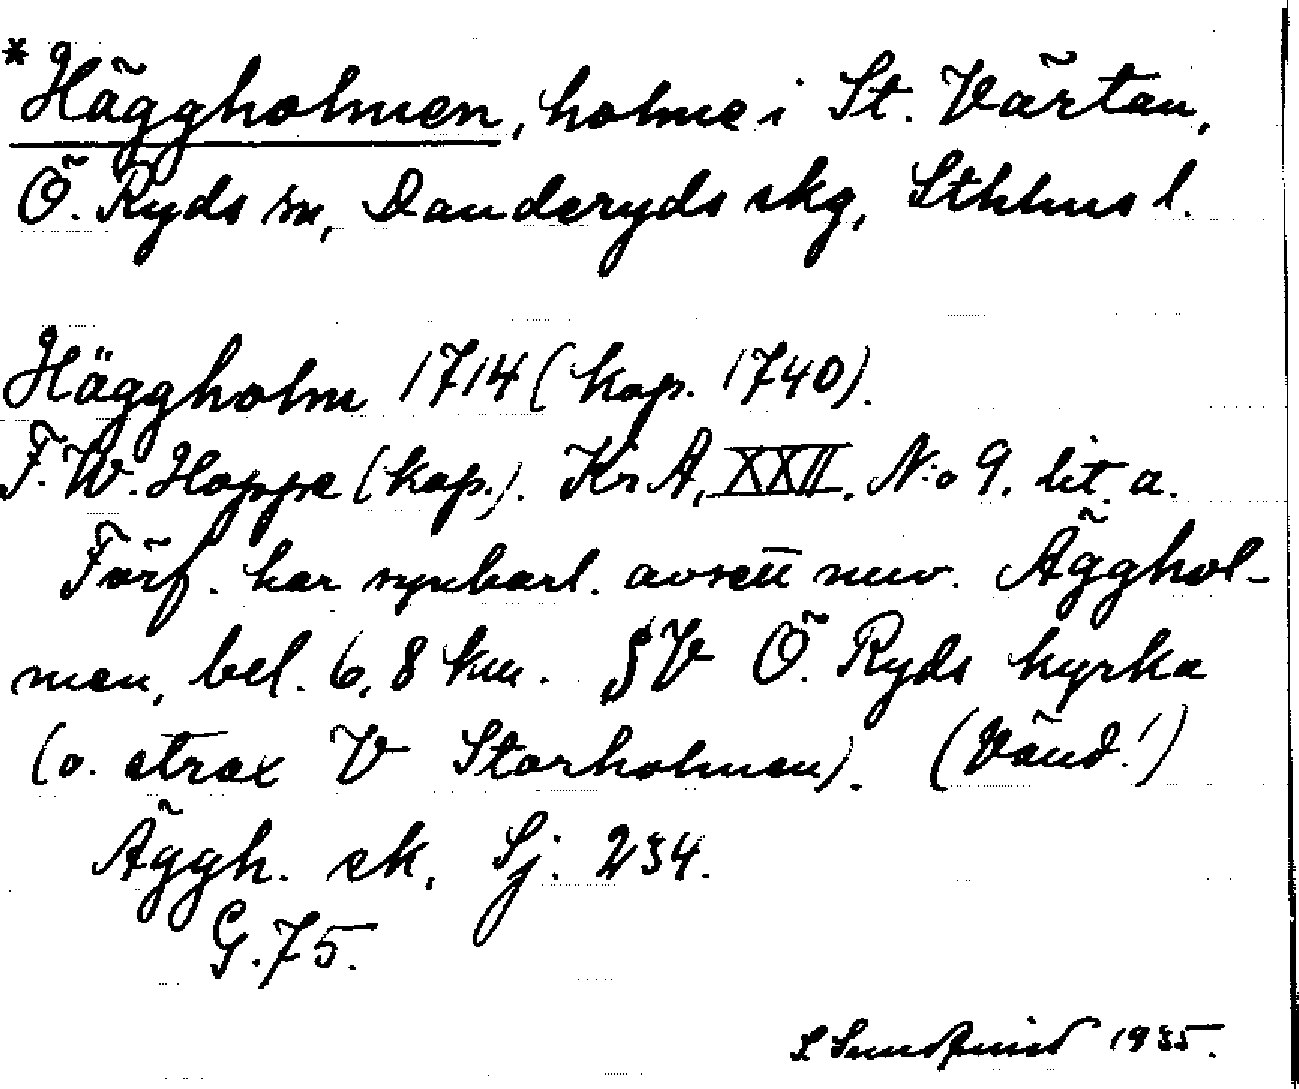 *Häggholmen, holme i St. Värtan,
Ö. Ryds sn, Danderyds skg, Sthlms l.
Häggholm 1714 (kop. 1740).
F. W. Hoppe (kop.). KrA, XXII. N:o 9. lit. a.
Förf. har synbarl. avsett nuv. Ägghol-
men, bel. 6,8 km. SV Ö. Ryds kyrka
(o. strax V Storholmen). (Vänd!)
Äggh. ek. Sj. 234.
G. 75.
S Sundqvist 1935.